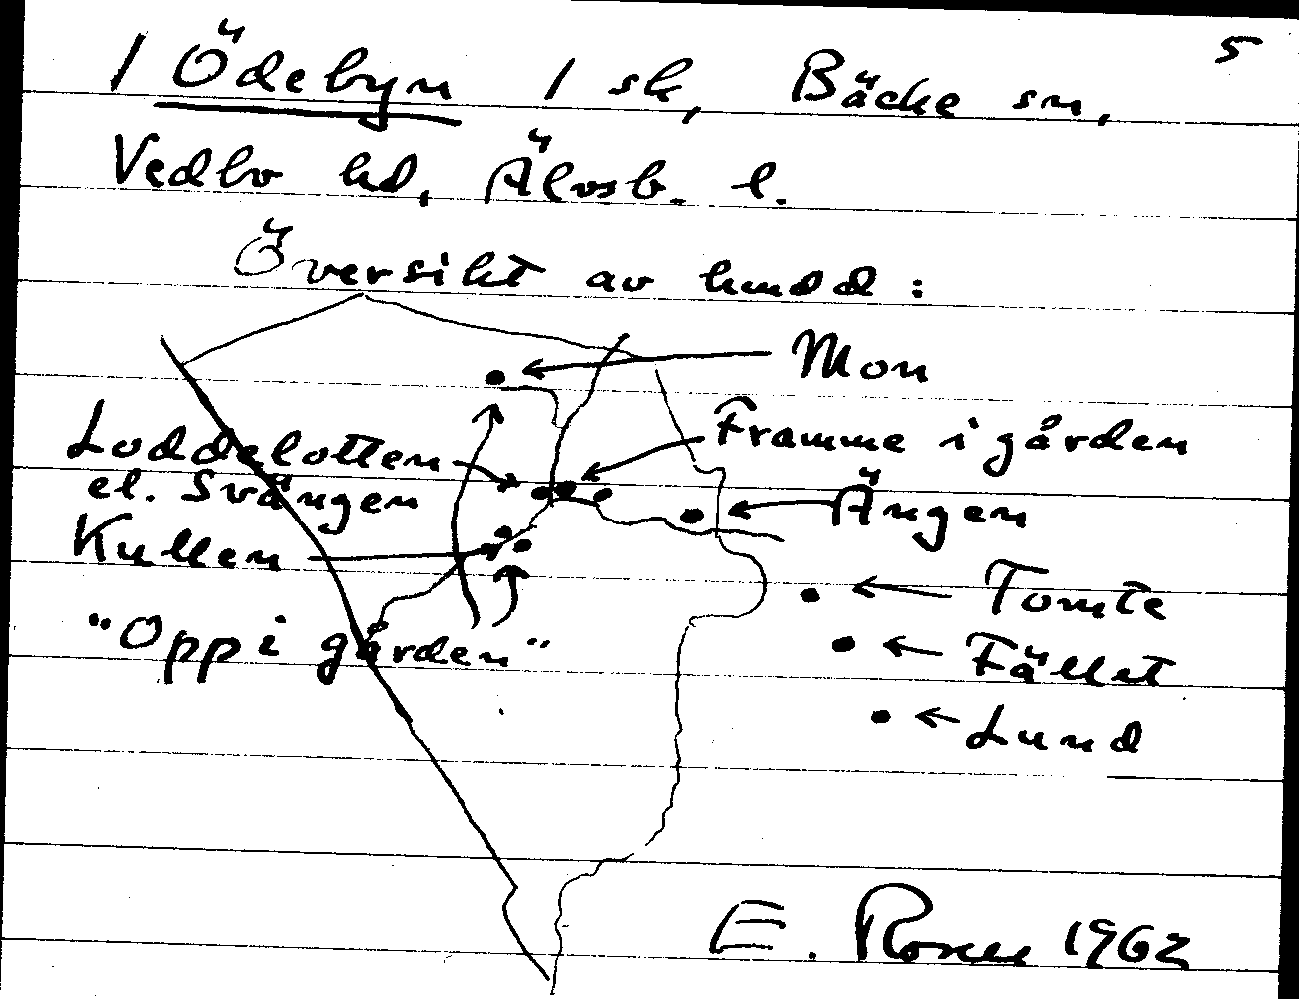 5
1 Ödebyn 1 sk, Bäcke sn,
Vedbo hd, Älvsb. l.
Översikt av hmdd:
Mon
Framme i gården
Loddelotten
el. Svängen
Ängen
Kullen
Tomte
"Opp i gården"
Fället
Lund
E. 1962